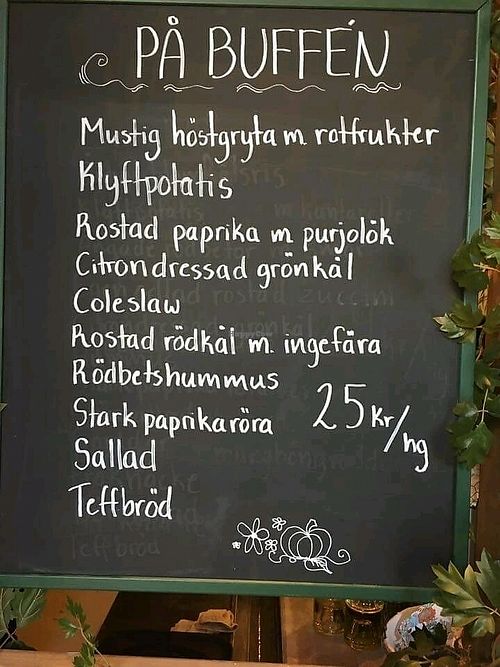 PÅ BUFFÉN
Mustig höstgryta m. rotfrukter
Klyftpotatis
Rostad paprika m purjolök
Citrondressad grönkål
Coleslaw
Rostad rödkål m. ingefära
Rödbetshummus
Stark paprikaröra
25 Kr/hg
Sallad
Teffbröd
Teffbröd